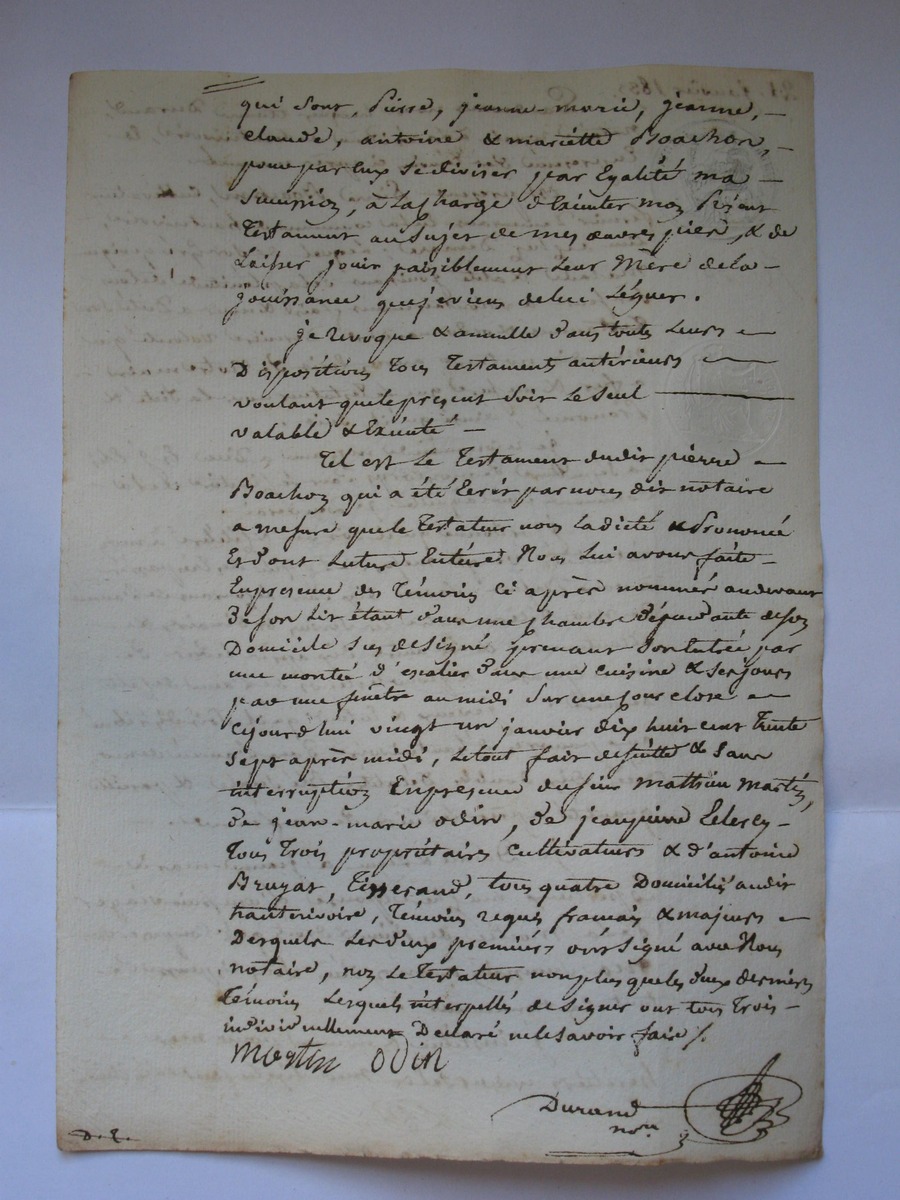 qui sont, Pierre, jeanne-marie, jeanne, —
claude, antoine & mariette Boachon, —
pour par Eux se diviser par Egalité ma —
Succession, a La charge d'Exécuter mon Présent
Testament au Sujet de mes œuvres pies, & de
Laisser jouir paisiblement Leur Mère de la —
jouissance que je viens de lui Léguer.
je revoque & annulle dans toutes Leurs —
Dispositions tous Testaments antérieurs —
voulant que le present soit Le Seul —
valable & Exécuté —
Tel est Le Testament dudit pierre —
Boachon qui a été Ecrit par nous dit notaire
a mesure que le Testateur nous La dicté & Prononcé
Et dont Lecture Entière Nous Lui avons faite
En presence des Témoins Ci après nommés au devant
De son Lit étant dans une chambre dépendante de son
Domicile sus designé prenant son Entrée par
une montée d'escalier dans une cuisine & ses jours
par une fenêtre au midi sur une Cour close —
Cejourd'hui vingt un janvier dix huit cent trente
sept après midi, Le tout fait de suitte & sans
interruption En presence du sieur Matthieu Martin,
de jean-marie odin, de jean pierre —
tous trois propriétaires cultivateurs & d'antoine
Bruyas, Tisserand, tous quatre Domiciliés audit
hauterivoire, Témoins requis français & majeurs —
Desquels Les deux premiers ont signé avec Nous
notaire, non Le Testateur non plus que les deux derniers
Témoins Lesquels interpellés de signer ont tous Trois —
individuellement Declaré ne le savoir faire /.
Martin odin
Durand
nore
D. E.